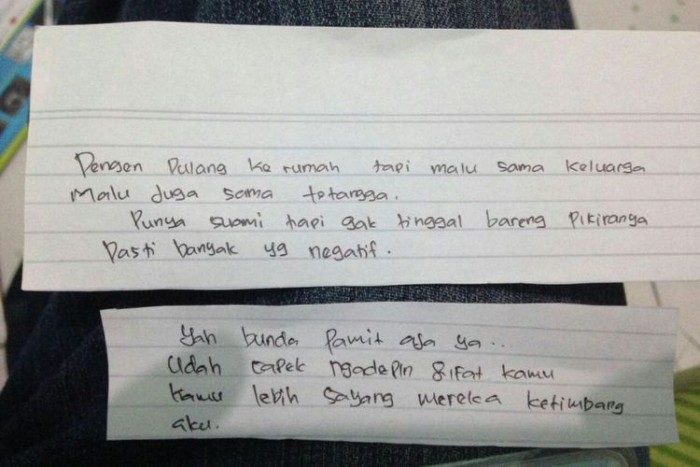 Pengen Pulang ke rumah tapi malu sama keluarga
Malu Juga sama tetangga.
Punya suami tapi gak tinggal bareng Pikiranya
Pasti banyak yg negatif.
Yah bunda Pamit aja ya..
Udah capek ngadepin sifat kamu
kamu lebih sayang mereka ketimbang
aku.